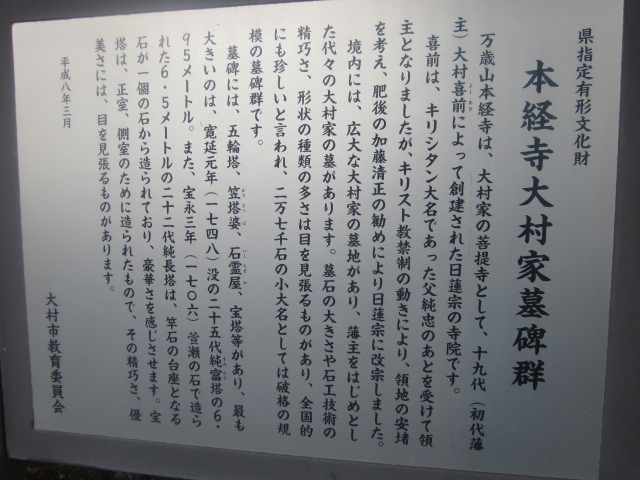 県指定有形文化財
本経寺大村家墓碑群
万歳山本経寺は、大村家の菩提寺として、十九代（初代藩
主）大村喜前によって創建された日蓮宗の寺院です。
喜前は、キリシタン大名であった父純忠のあとを受けて領
主となりましたが、キリスト教禁制の動きにより、領地の安堵
を考え、肥後の加藤清正の勧めにより日蓮宗に改宗しました。
境内には、広大な大村家の墓地があり、藩主をはじめとし
た代々の大村家の墓があります。墓石の大きさや石工技術の
精巧さ、形状の種類の多さは目を見張るものがあり、全国的
にも珍しいと言われ、二万七千石の小大名としては破格の規
模の墓碑群です。
墓碑には、五輪塔、笠塔婆、石霊屋、宝塔等があり、最も
大きいのは、寛延元年（一七四八）没の二十五代純富塔の6・
95メートル。また、宝永三年（一七〇六）萱瀬の石で造ら
れた6・5メートルの二十二代純長塔は、竿石の台座となる
石が一個の石から造られており、豪華さを感じさせます。宝
塔は、正室、側室のために造られたもので、その精巧さ、優
美さには、目を見張るものがあります。
平成八年三月
大村市教育委員会